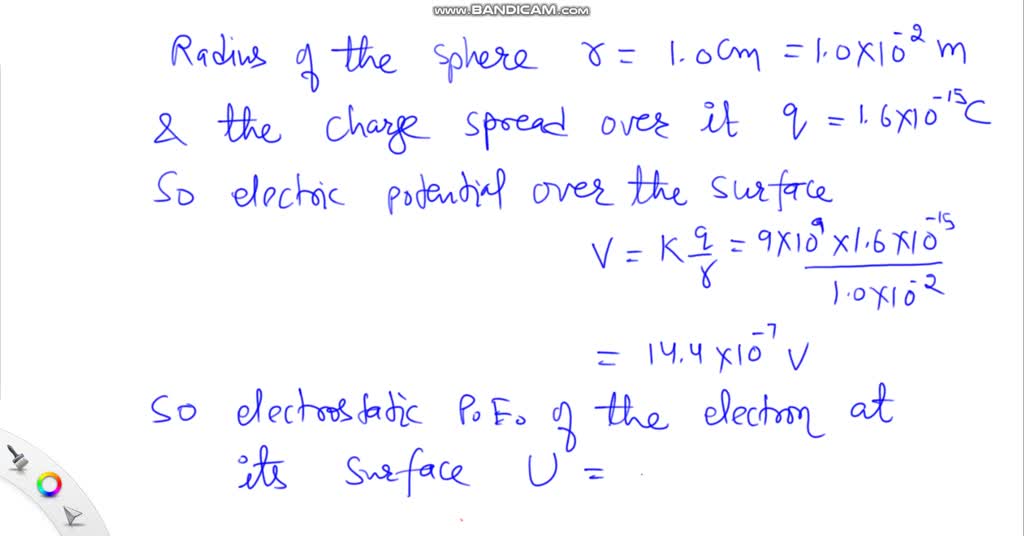 www.BANDICAM.com
Radius of the sphere r = 1.0cm = 1.0×10⁻² m
& the charge spread over it q = 1.6×10⁻¹⁵C
So electric potential over the surface
V = K q/r = 9×10⁹×1.6×10⁻¹⁵/1.0×10⁻²
= 14.4×10⁻⁷ V
So electrostatic P.E. of the electron at
its surface U =